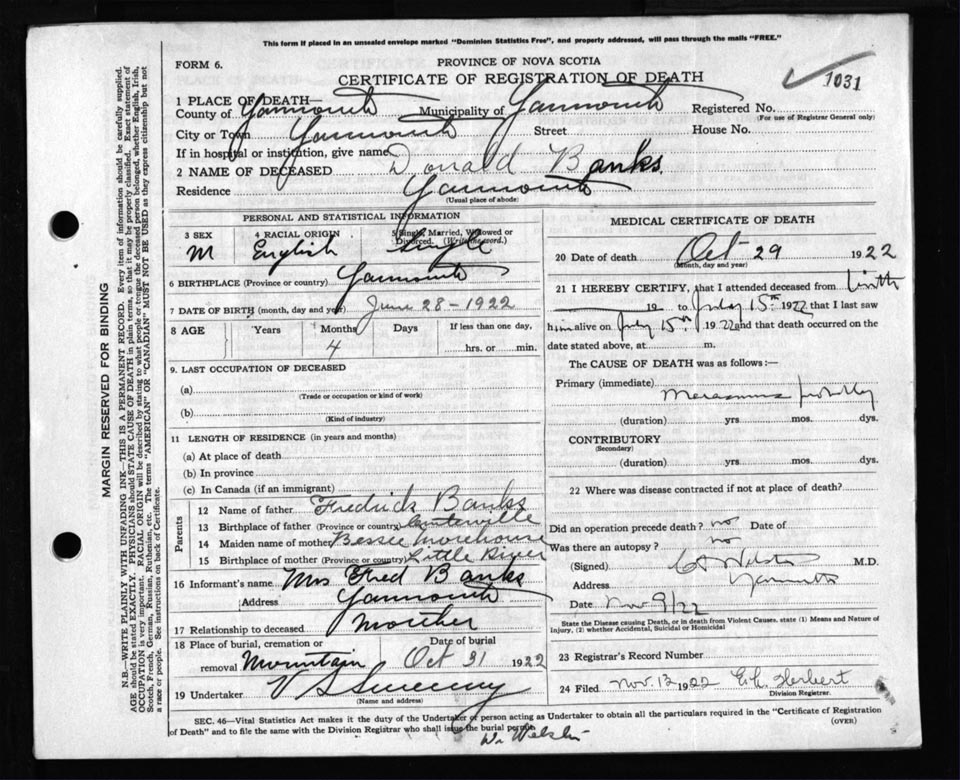 This form if placed in an unsealed envelope marked "Dominion Statistics Free", and properly addressed, will pass through the mails "FREE."
FORM 6.
PROVINCE OF NOVA SCOTIA
CERTIFICATE OF REGISTRATION OF DEATH
1031
1 PLACE OF DEATH—
County of Yarmouth Municipality of Yarmouth Registered No.
(For use of Registrar General only)
City or Town Yarmouth Street House No.
If in hospital or institution, give name
2 NAME OF DECEASED Donald Banks.
Residence Yarmouth
(Usual place of abode)
PERSONAL AND STATISTICAL INFORMATION
3 SEX 4 RACIAL ORIGIN 5 Single, Married, Widowed or Divorced. (Write the word.)
M English Single
6 BIRTHPLACE (Province or country) Yarmouth
7 DATE OF BIRTH (month, day and year) June 28-1922
8 AGE Years Months Days If less than one day,
4 hrs. or min.
9. LAST OCCUPATION OF DECEASED
(a)
(Trade or occupation or kind of work)
(b)
(Kind of industry)
11 LENGTH OF RESIDENCE (in years and months)
(a) At place of death
(b) In province
(c) In Canada (if an immigrant)
Parents
12 Name of father Fredrick Banks
13 Birthplace of father (Province or country)
14 Maiden name of mother Bessie Morehouse
15 Birthplace of mother (Province or country) Little River
16 Informant's name Mrs Fred Banks
Address Yarmouth
17 Relationship to deceased Mother
18 Place of burial, cremation or Date of burial
removal Mountain Oct 31 1922
19 Undertaker V S Sweeney
(Name and address)
MEDICAL CERTIFICATE OF DEATH
20 Date of death Oct 29 1922
(Month, day and year)
21 I HEREBY CERTIFY, that I attended deceased from birth
19 to July 15th 1922 that I last saw
him alive on July 15th 1922 and that death occurred on the
date stated above, at m.
The CAUSE OF DEATH was as follows:—
Primary (immediate) Marasmus probably
(duration) yrs mos. dys.
CONTRIBUTORY
(Secondary)
(duration) yrs mos. dys.
22 Where was disease contracted if not at place of death?
Did an operation precede death? no Date of
Was there an autopsy? no
(Signed) Webster M.D.
Address Yarmouth
Date Nov 9/22
State the Disease causing Death, or in death from Violent Causes, state (1) Means and Nature of
Injury, (2) whether Accidental, Suicidal or Homicidal
23 Registrar's Record Number
24 Filed Nov. 12 1922 Herbert
Division Registrar.
SEC. 46—Vital Statistics Act makes it the duty of the Undertaker or person acting as Undertaker to obtain all the particulars required in the "Certificate of Registration
of Death" and to file the same with the Division Registrar who shall issue the burial permit (OVER)
Dr Webster
MARGIN RESERVED FOR BINDING
N.B.—WRITE PLAINLY WITH UNFADING INK—THIS IS A PERMANENT RECORD. Every item of information should be carefully supplied.
AGE should be stated EXACTLY. PHYSICIANS should STATE CAUSE OF DEATH in plain terms, so that it may be properly classified. Exact statement of
OCCUPATION is very important. RACIAL ORIGIN will be described by stating to what people or tongue the deceased person belonged, whether English, Irish,
Scotch, French, German, Russian, Ruthenian, etc. The terms "AMERICAN" OR "CANADIAN" MUST NOT BE USED as they express citizenship but not
a race or people. See instructions on back of Certificate.